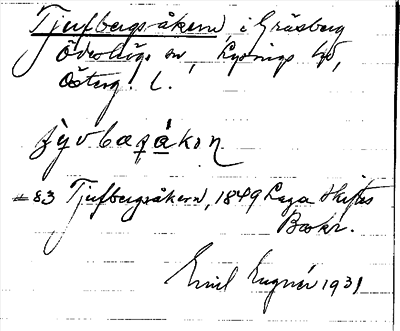 Tjufbergsåkern i Gräsberg
Ödeshögs sn, Lysings hd,
Österg. l.
ȷy̆vbæրåkəɳ
#83 Tjufbergsåkern, 1849 Laga Skiftes
Beskr.
Emil Lugnér 1931